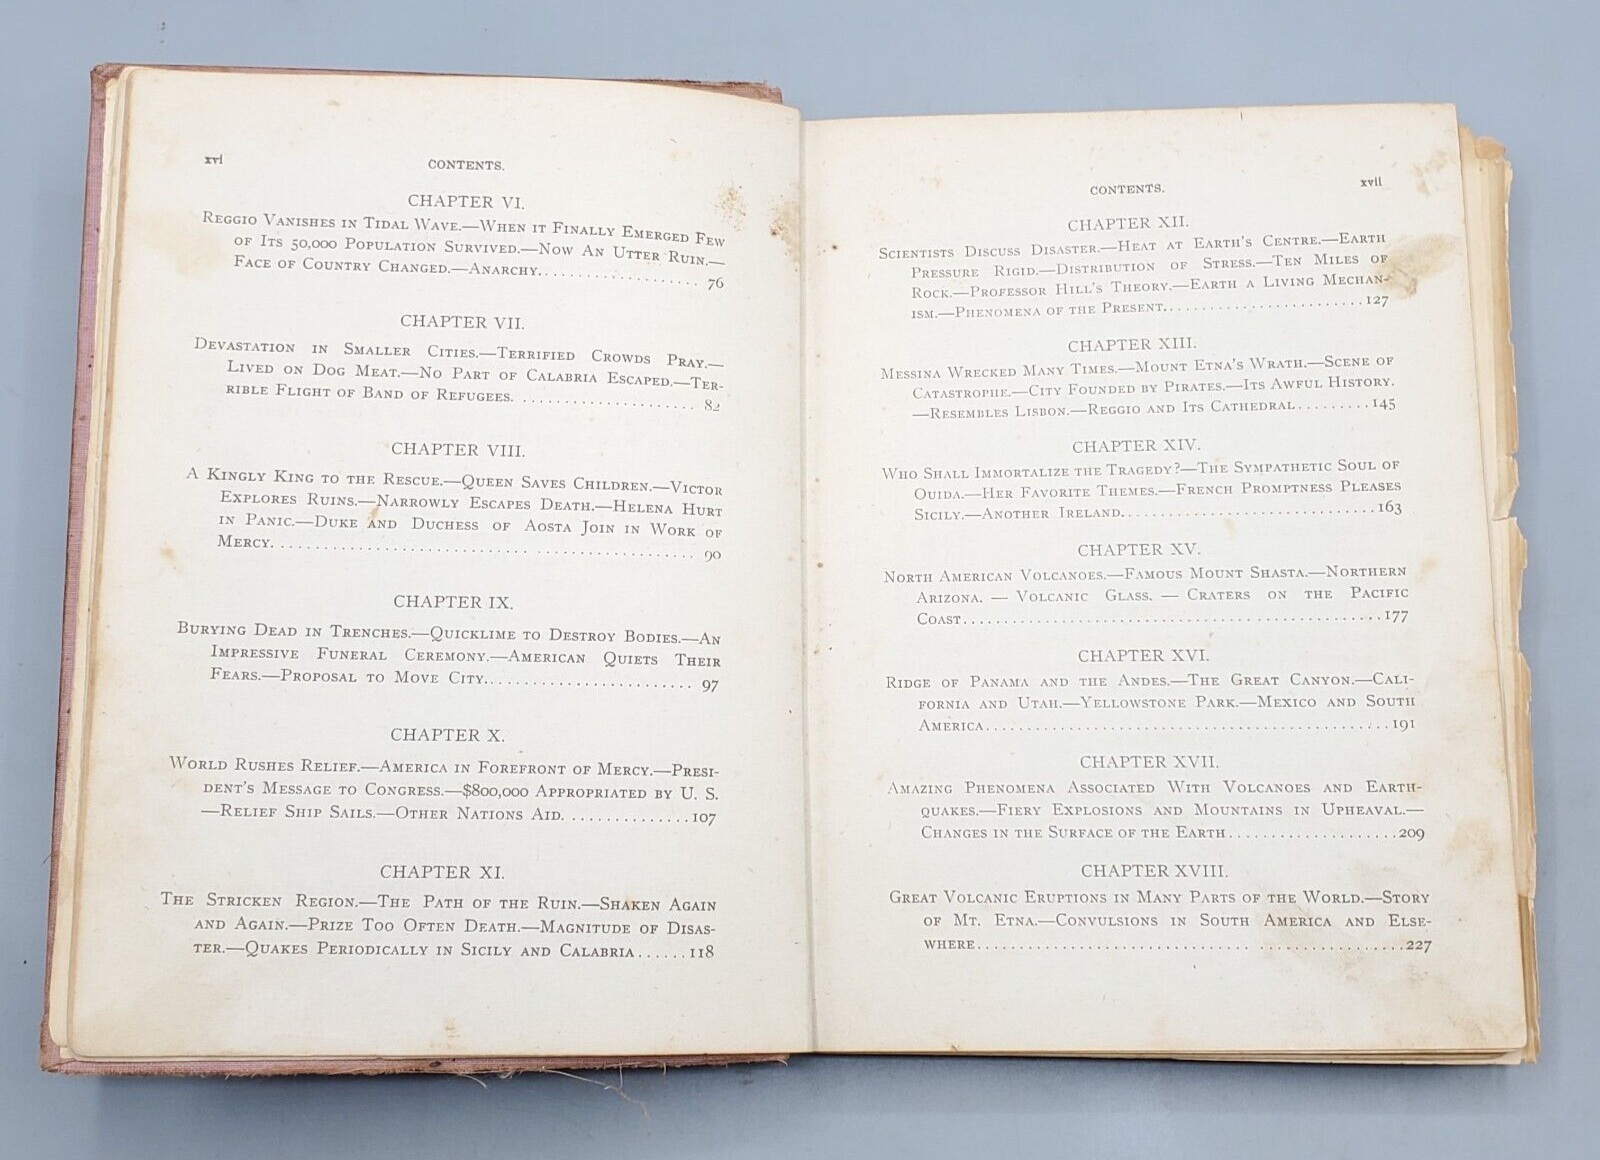 xvi
CONTENTS.
CHAPTER VI.
REGGIO VANISHES IN TIDAL WAVE.—WHEN IT FINALLY EMERGED FEW
OF ITS 50,000 POPULATION SURVIVED.—NOW AN UTTER RUIN.—
FACE OF COUNTRY CHANGED.—ANARCHY.................. 76
CHAPTER VII.
DEVASTATION IN SMALLER CITIES.—TERRIFIED CROWDS PRAY.—
LIVED ON DOG MEAT.—NO PART OF CALABRIA ESCAPED.—TER-
RIBLE FLIGHT OF BAND OF REFUGEES. ..................... 82
CHAPTER VIII.
A KINGLY KING TO THE RESCUE.—QUEEN SAVES CHILDREN.—VICTOR
EXPLORES RUINS.—NARROWLY ESCAPES DEATH.—HELENA HURT
IN PANIC.—DUKE AND DUCHESS OF AOSTA JOIN IN WORK OF
MERCY............................................. 90
CHAPTER IX.
BURYING DEAD IN TRENCHES.—QUICKLIME TO DESTROY BODIES.—AN
IMPRESSIVE FUNERAL CEREMONY.—AMERICAN QUIETS THEIR
FEARS.—PROPOSAL TO MOVE CITY......................... 97
CHAPTER X.
WORLD RUSHES RELIEF.—AMERICA IN FOREFRONT OF MERCY.—PRESI-
DENT'S MESSAGE TO CONGRESS.—$800,000 APPROPRIATED BY U. S.
—RELIEF SHIP SAILS.—OTHER NATIONS AID...............107
CHAPTER XI.
THE STRICKEN REGION.—THE PATH OF THE RUIN.—SHAKEN AGAIN
AND AGAIN.—PRIZE TOO OFTEN DEATH.—MAGNITUDE OF DISAS-
TER.—QUAKES PERIODICALLY IN SICILY AND CALABRIA......118
CONTENTS.
xvii
CHAPTER XII.
SCIENTISTS DISCUSS DISASTER.—HEAT AT EARTH'S CENTRE.—EARTH
PRESSURE RIGID.—DISTRIBUTION OF STRESS.—TEN MILES OF
ROCK.—PROFESSOR HILL'S THEORY.—EARTH A LIVING MECHAN-
ISM.—PHENOMENA OF THE PRESENT......................127
CHAPTER XIII.
MESSINA WRECKED MANY TIMES.—MOUNT ETNA'S WRATH.—SCENE OF
CATASTROPHE.—CITY FOUNDED BY PIRATES.—ITS AWFUL HISTORY.
—RESEMBLES LISBON.—REGGIO AND ITS CATHEDRAL.........145
CHAPTER XIV.
WHO SHALL IMMORTALIZE THE TRAGEDY?—THE SYMPATHETIC SOUL OF
OUIDA.—HER FAVORITE THEMES.—FRENCH PROMPTNESS PLEASES
SICILY.—ANOTHER IRELAND............................163
CHAPTER XV.
NORTH AMERICAN VOLCANOES.—FAMOUS MOUNT SHASTA.—NORTHERN
ARIZONA. — VOLCANIC GLASS. — CRATERS ON THE PACIFIC
COAST..............................................177
CHAPTER XVI.
RIDGE OF PANAMA AND THE ANDES.—THE GREAT CANYON.—CALI-
FORNIA AND UTAH.—YELLOWSTONE PARK.—MEXICO AND SOUTH
AMERICA............................................191
CHAPTER XVII.
AMAZING PHENOMENA ASSOCIATED WITH VOLCANOES AND EARTH-
QUAKES.—FIERY EXPLOSIONS AND MOUNTAINS IN UPHEAVAL.—
CHANGES IN THE SURFACE OF THE EARTH....................209
CHAPTER XVIII.
GREAT VOLCANIC ERUPTIONS IN MANY PARTS OF THE WORLD.—STORY
OF MT. ETNA.—CONVULSIONS IN SOUTH AMERICA AND ELSE-
WHERE..............................................227